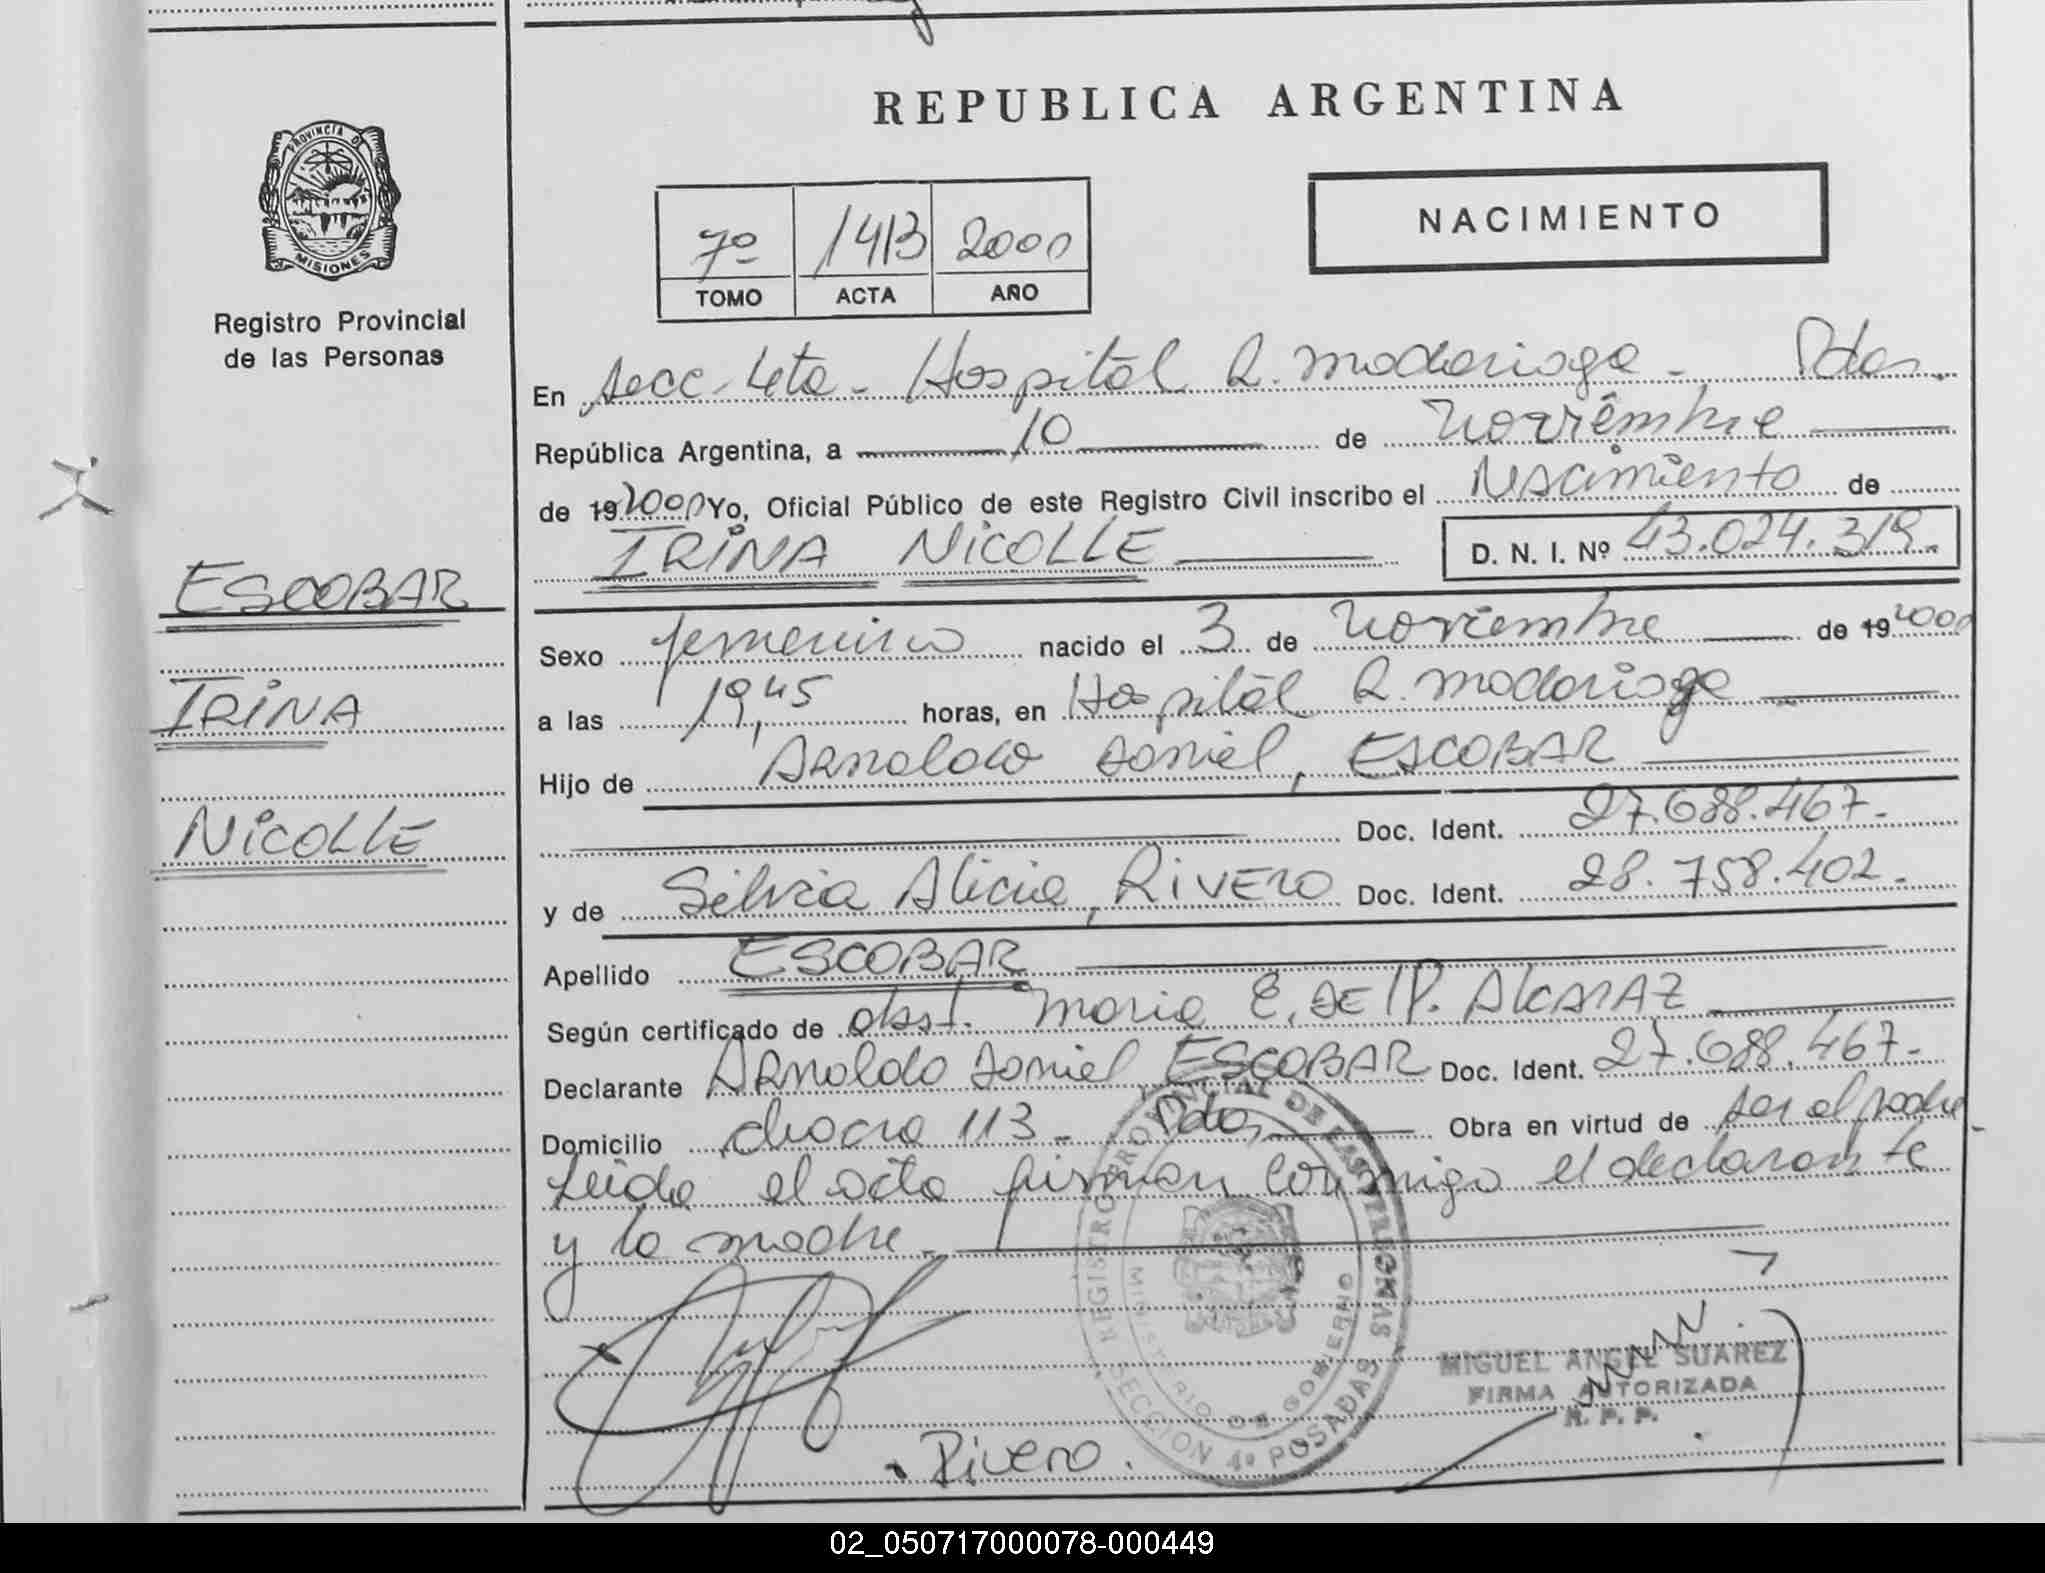 REPUBLICA ARGENTINA
PROVINCIA DE
MISIONES
Registro Provincial
de las Personas
7º 1413 2000
TOMO ACTA AÑO
NACIMIENTO
En Secc. 4ta - Hospital R. Madariaga - Pdas.
República Argentina, a 10 de noviembre
de 19 2000 Yo, Oficial Público de este Registro Civil inscribo el Nacimiento de
IRINA NICOLLE D. N. I. Nº 43.024.319.
ESCOBAR
IRINA
NICOLLE
Sexo femenino nacido el 3 de noviembre de 19 2000
a las 19,45 horas, en Hospital R. Madariaga
Hijo de Arnoldo Daniel, ESCOBAR
Doc. Ident. 27.688.467.-
y de Silvia Alicia, RIVERO Doc. Ident. 28.758.402.-
Apellido ESCOBAR
Según certificado de obst. Maria E. DE P. ALCARAZ
Declarante Arnoldo Daniel ESCOBAR Doc. Ident. 27.688.467.-
Domicilio chacra 113 - Pdas. Obra en virtud de ser el padre -
Leida el acta firman conmigo el declarante
y la madre.-
REGISTRO PROVINCIAL DE LAS PERSONAS
MINISTERIO DE GOBIERNO
SECCION 4º POSADAS
MIGUEL ANGEL SUAREZ
FIRMA AUTORIZADA
R. P. P.
Rivero.
02_050717000078-000449